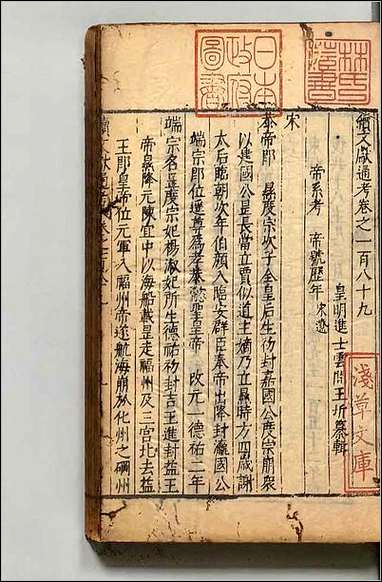 續文獻通考卷之一百八十九
皇明進士雲間王圻纂輯
帝系考　帝號歷年　宋遼
宋
恭帝㬎　度宗次子全皇后生初封嘉國公度宗崩衆
以建國公昰長當立賈似道主嫡乃立㬎時方四歲謝
太后臨朝次年伯顏入臨安群臣奉帝出降封瀛國公
端宗即位遙尊爲孝恭懿聖皇帝　改元一德祐二年
端宗名昰度宗妃楊淑妃所生德祐初封吉王進封益王
帝㬎降元陳宜中以海船載昰走福州及三宮北去益
王即皇帝位元軍入福州帝遂航海崩於化州之碙州
日本政府圖書
林氏藏書
淺草文庫